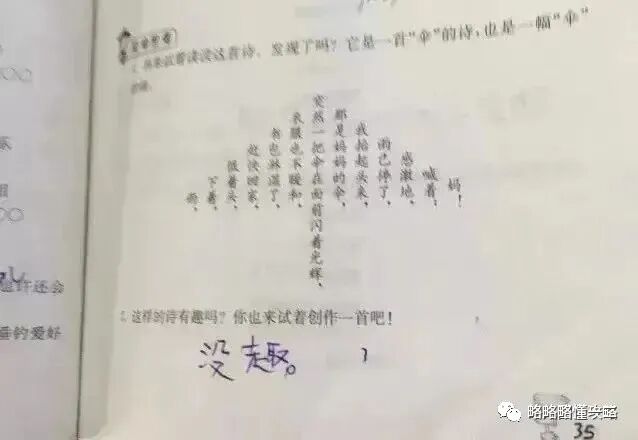 试着读读这首诗,发现了吗?它是一首“伞”的诗,也是一幅“伞”
雨,
下着,
低着头,
赶快回家,
书也淋湿了,
衣服也不暖和,
突然一把伞在面前闪着光辉,
那是妈妈的伞,
我抬起头来,
雨已停了,
感激地,
喊着,
妈!
2. 这样的诗有趣吗?你也来试着创作一首吧!
没趣。
许还会
垂钓爱好
略略略懂央
35